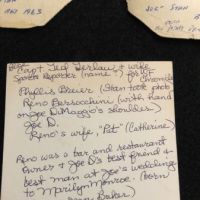 MAY 1963
JOE + STAN
Capt Ted Terlau & wife
Sports Reporter (name?) for SF Chronicle
Phyllis Brewer (Stan took photo)
Reno Barsocchini (with hand
on Joe DiMaggio's shoulder)
Joe D.
Reno's wife, "Pat" (Catherine)
Reno was a bar and restaurant
owner & Joe D's best friend &
best man at Joe's wedding
to Marilyn Monroe. (born
Baker)